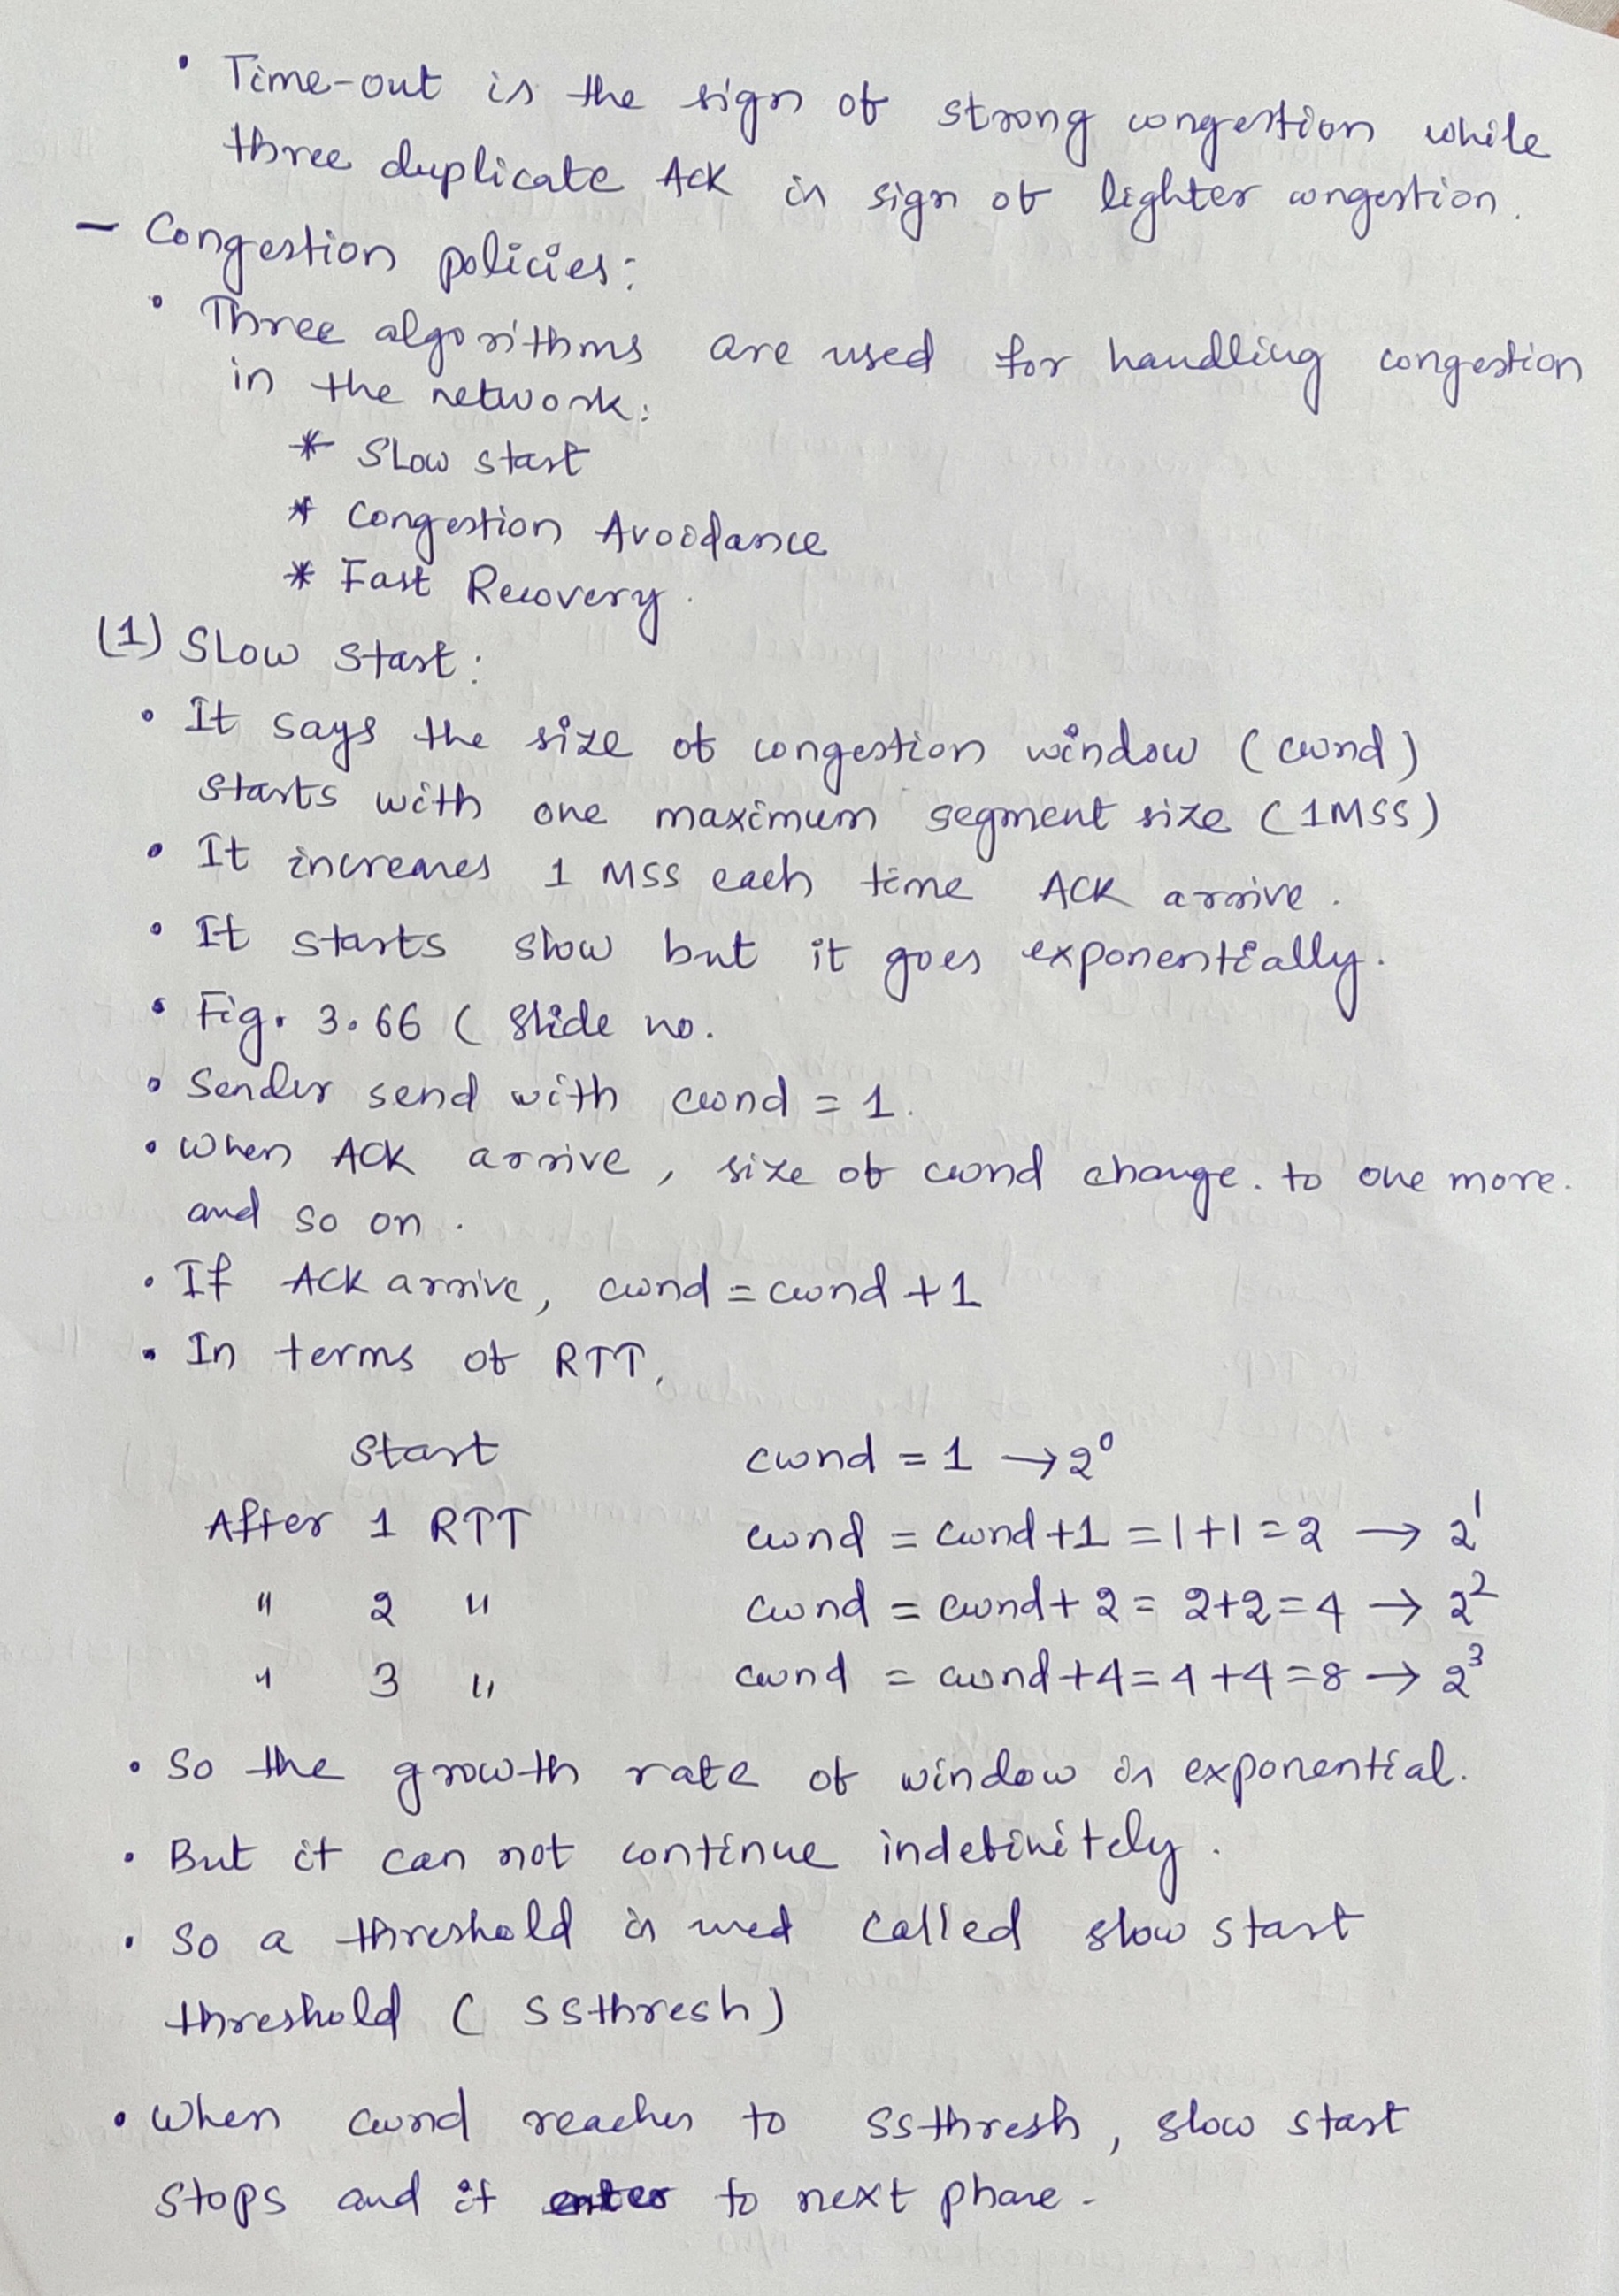 • Time-out is the sign of strong congestion while
three duplicate ACK is sign of lighter congestion.
- Congestion policies:
• Three algorithms are used for handling congestion
in the network:
* Slow start
* Congestion Avoidance
* Fast Recovery.
(1) Slow start:
• It says the size of congestion window (cwnd)
starts with one maximum segment size (1MSS)
• It increases 1 MSS each time ACK arrive.
• It starts slow but it goes exponentially.
• Fig. 3.66 ( Slide no.
• Sender send with cwnd = 1.
• When ACK arrive, size of cwnd change. to one more.
and so on.
• If ACK arrive, cwnd = cwnd + 1
• In terms of RTT,
Start cwnd = 1 → 2⁰
After 1 RTT cwnd = cwnd + 1 = 1+1 = 2 → 2¹
" 2 " cwnd = cwnd + 2 = 2+2 = 4 → 2²
" 3 " cwnd = cwnd + 4 = 4+4 = 8 → 2³
• So the growth rate of window is exponential.
• But it can not continue indefinitely.
• So a threshold is used called slow start
threshold ( ssthresh)
• When cwnd reaches to ssthresh, slow start
stops and it enter to next phase.